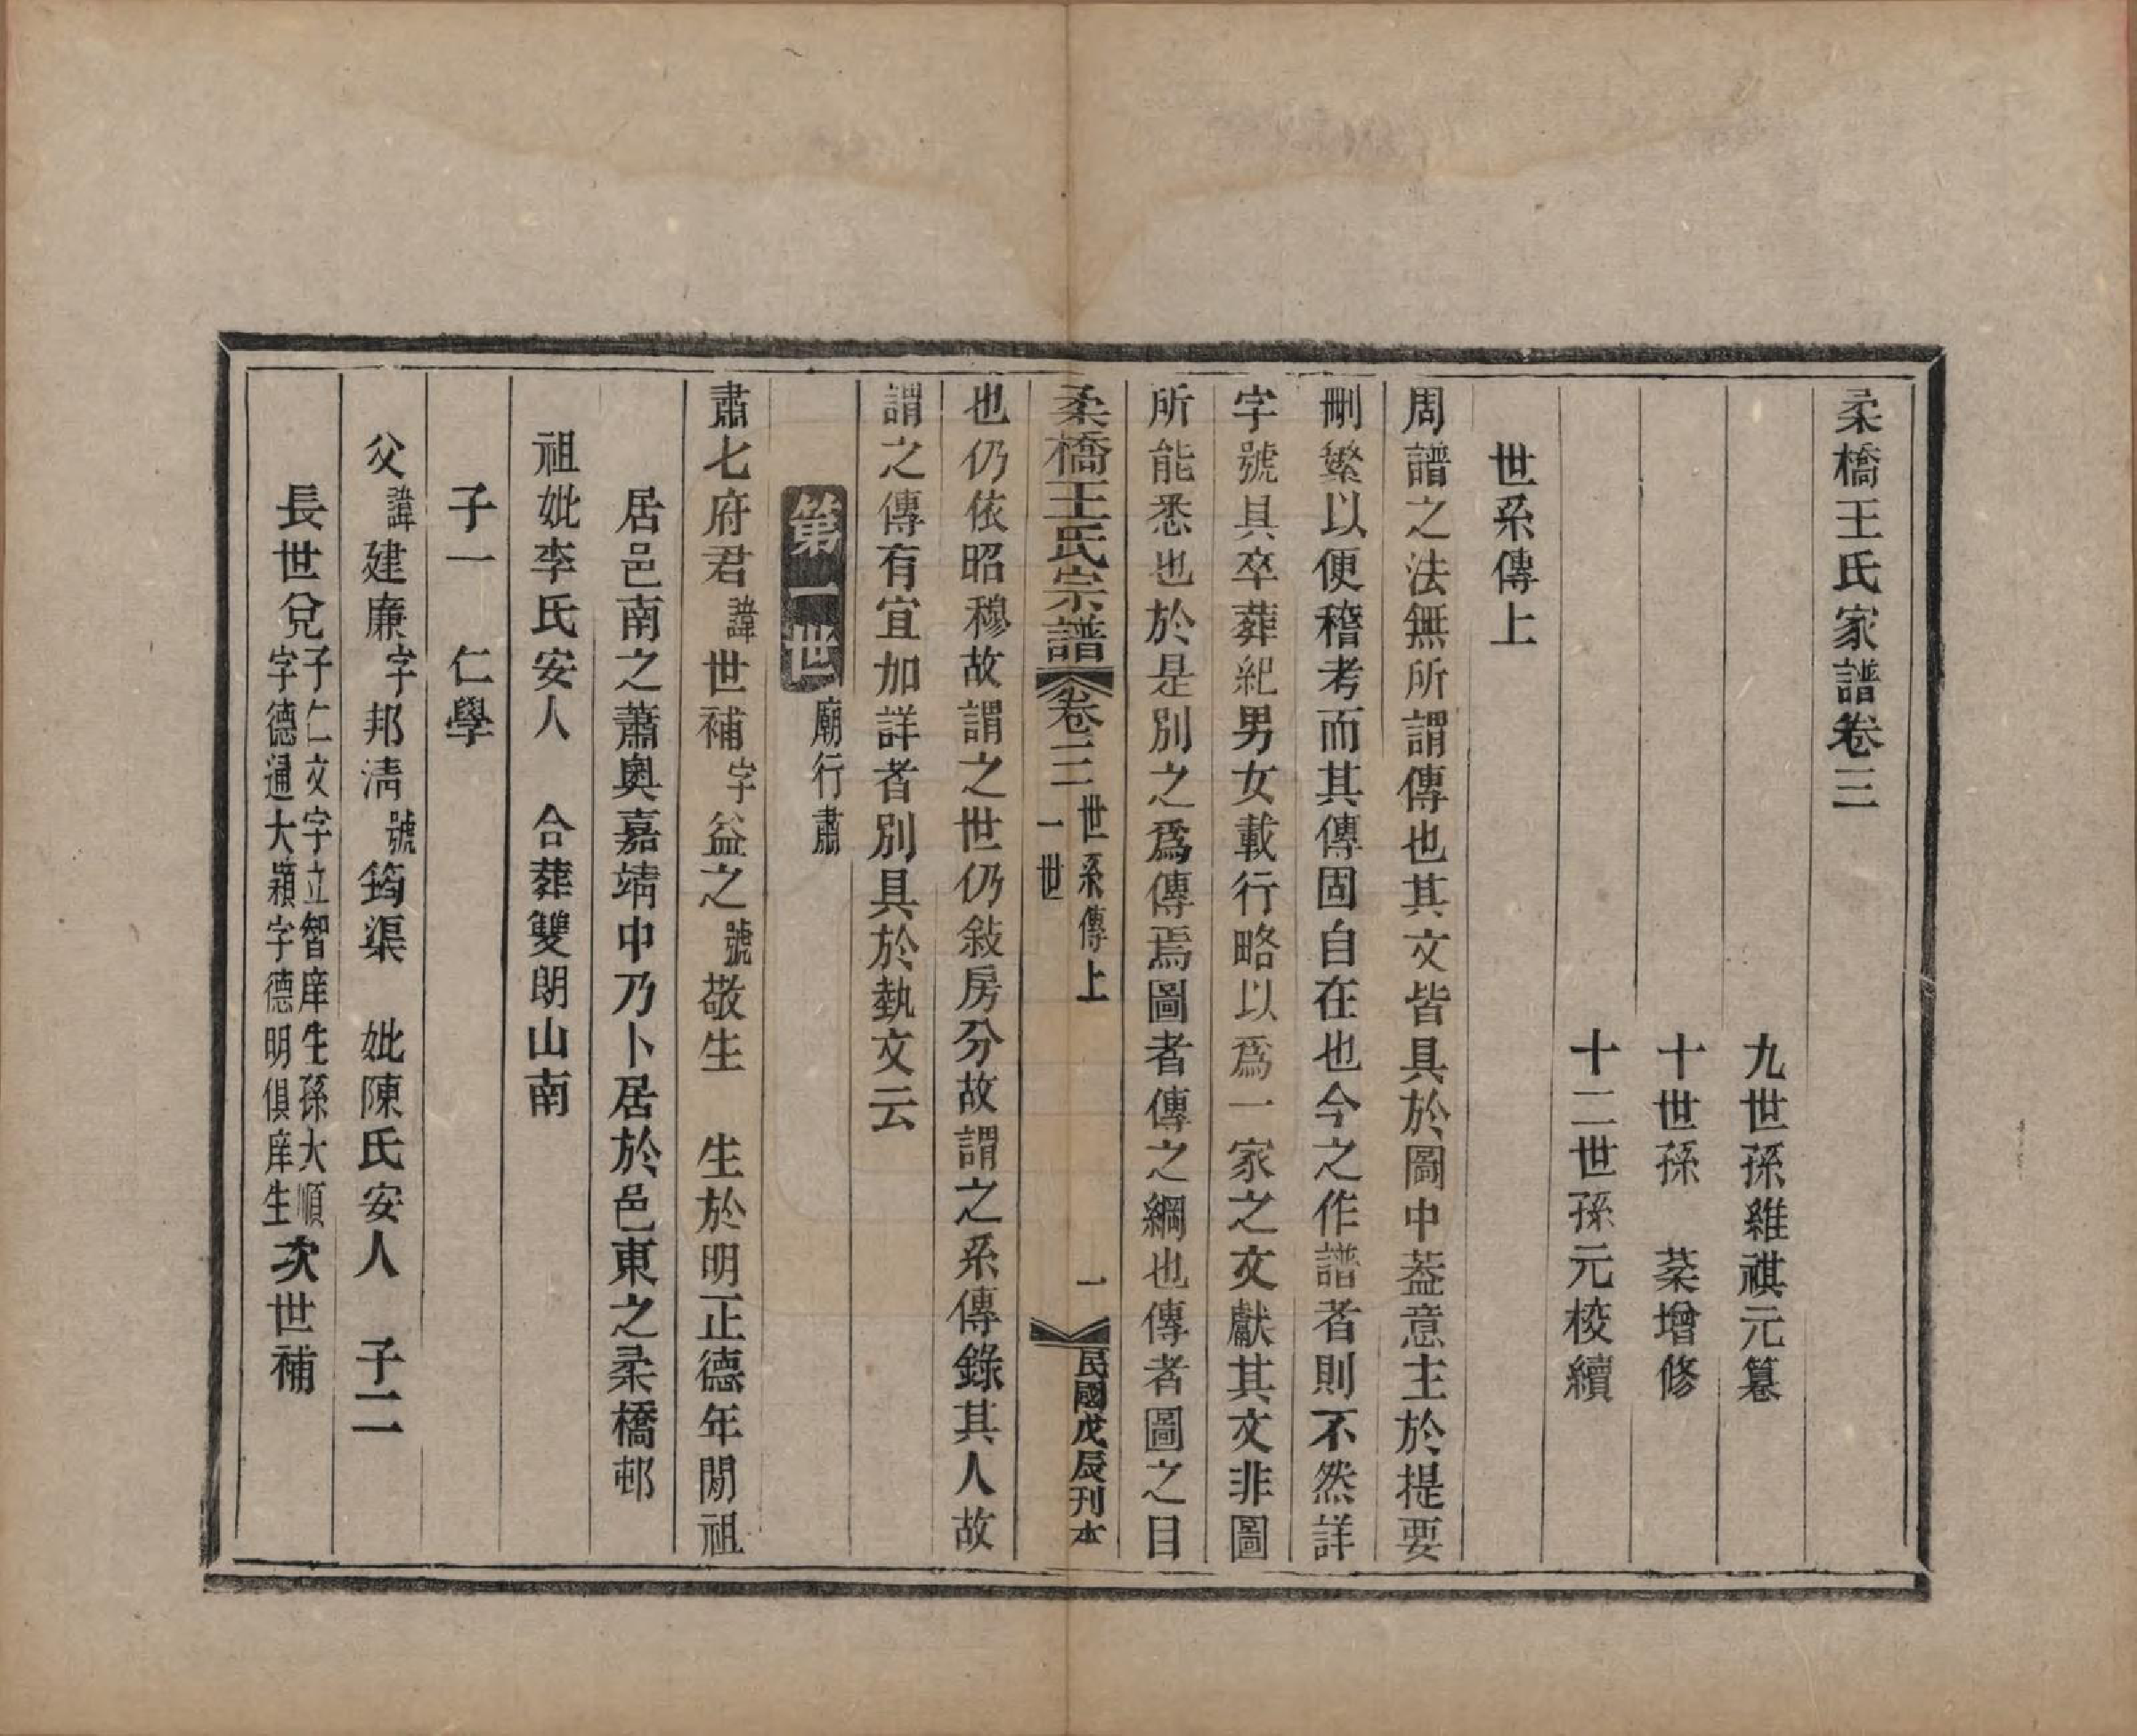 柔橋王氏家譜卷三
九世孫維祺元纂
十世孫　棻增修
十二世孫元校續
世系傳上
周譜之法無所謂傳也其文皆具於圖中葢意主於提要
刪繁以便稽考而其傳固自在也今之作譜者則不然詳
字號具卒葬紀男女載行略以爲一家之文獻其文非圖
所能悉也於是別之爲傳焉圖者傳之綱也傳者圖之目
柔橋王氏宗譜 卷三 世系傳上 一世 一 民國戊辰刊本
也仍依昭穆故謂之世仍敍房分故謂之系傳錄其人故
謂之傳有宜加詳者別具於埶文云
第一世 廟行肅
肅七府君諱世補字益之號敬生　生於明正德年閒祖
居邑南之蕭奧嘉靖中乃卜居於邑東之柔橋邨
祖妣李氏安人　合葬雙朗山南
子一　仁學
父諱建廉字邦淸號筠渠　妣陳氏安人　子二
長世兌子仁文字立智庠生孫大順字德通大穎字德明俱庠生次世補